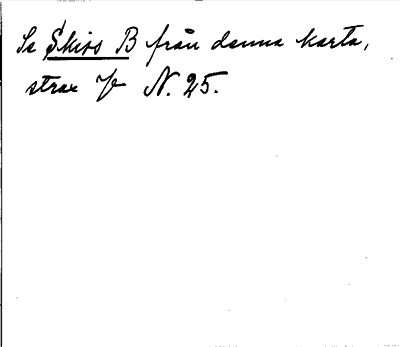 Se Skiss B från denna karta,
strax N. 25.